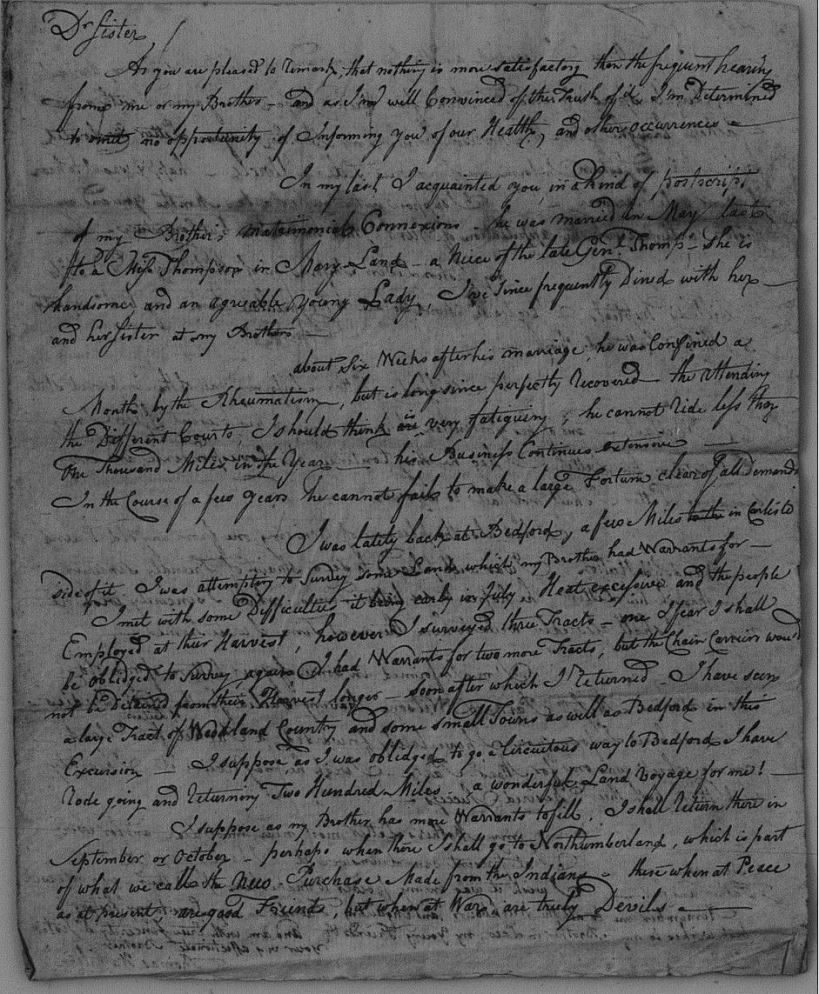 Dr Sister
As you are pleased to remark, that nothing is more satisfactory than the frequent hearing
from me or my Brother - and as I'm will Convinced of the Truth of it, I'm Determined
to omit no opportunity of Informing you of our Health, and other occurrences -
In my last, I acquainted you, in a kind of postscript
of my Brother's matrimonial Connexions - he was married in May last
to a Miss Thompson in Mary-Land - a Niece of the late Genl. Thompn - She is
handsome and an agreable young Lady, I've since frequently Dined with her
and her Sister at my Brothers -
about Six Weeks after his marriage, he was Confined a
Month by the Rheumatism, but is long since perfectly recovered - the attending
the Different Courts, I should think are very fatiguing, he cannot ride less than
One Thousand Miles in the Year - his Business Continues extensive -
In the Course of a few years he cannot fail to make a large Fortune clear of all Demands
I was lately back at Bedford, a few Miles to the in Carlisle
side of it I was attempting to Survey some Lands which my Brother had Warrants for -
I met with some Difficulties it being early in July - Heat excessive and the people
Employed at their Harvest, however I surveyed three Tracts - one I fear I shall
be oblidged to Survey again I had Warrants for two more Tracts, but the Chain Carriers would
not be Detained from their Harvest longer - soon after which I returned - I have seen
a large Tract of Woodland Country and some small Towns as well as Bedford in this
Excursion - I suppose as I was oblidged to go a Circuitous way to Bedford I have
rode going and returning Two Hundred Miles - a wonderful Land Voyage for me! -
I suppose as my Brother has more Warrants to fill, I shall return there in
September or October - perhaps when there I shall go to Northumberland, which is part
of what we call the New Purchase Made from the Indians - these when at Peace
as at present, are good Friends, but when at War are truly Devils -